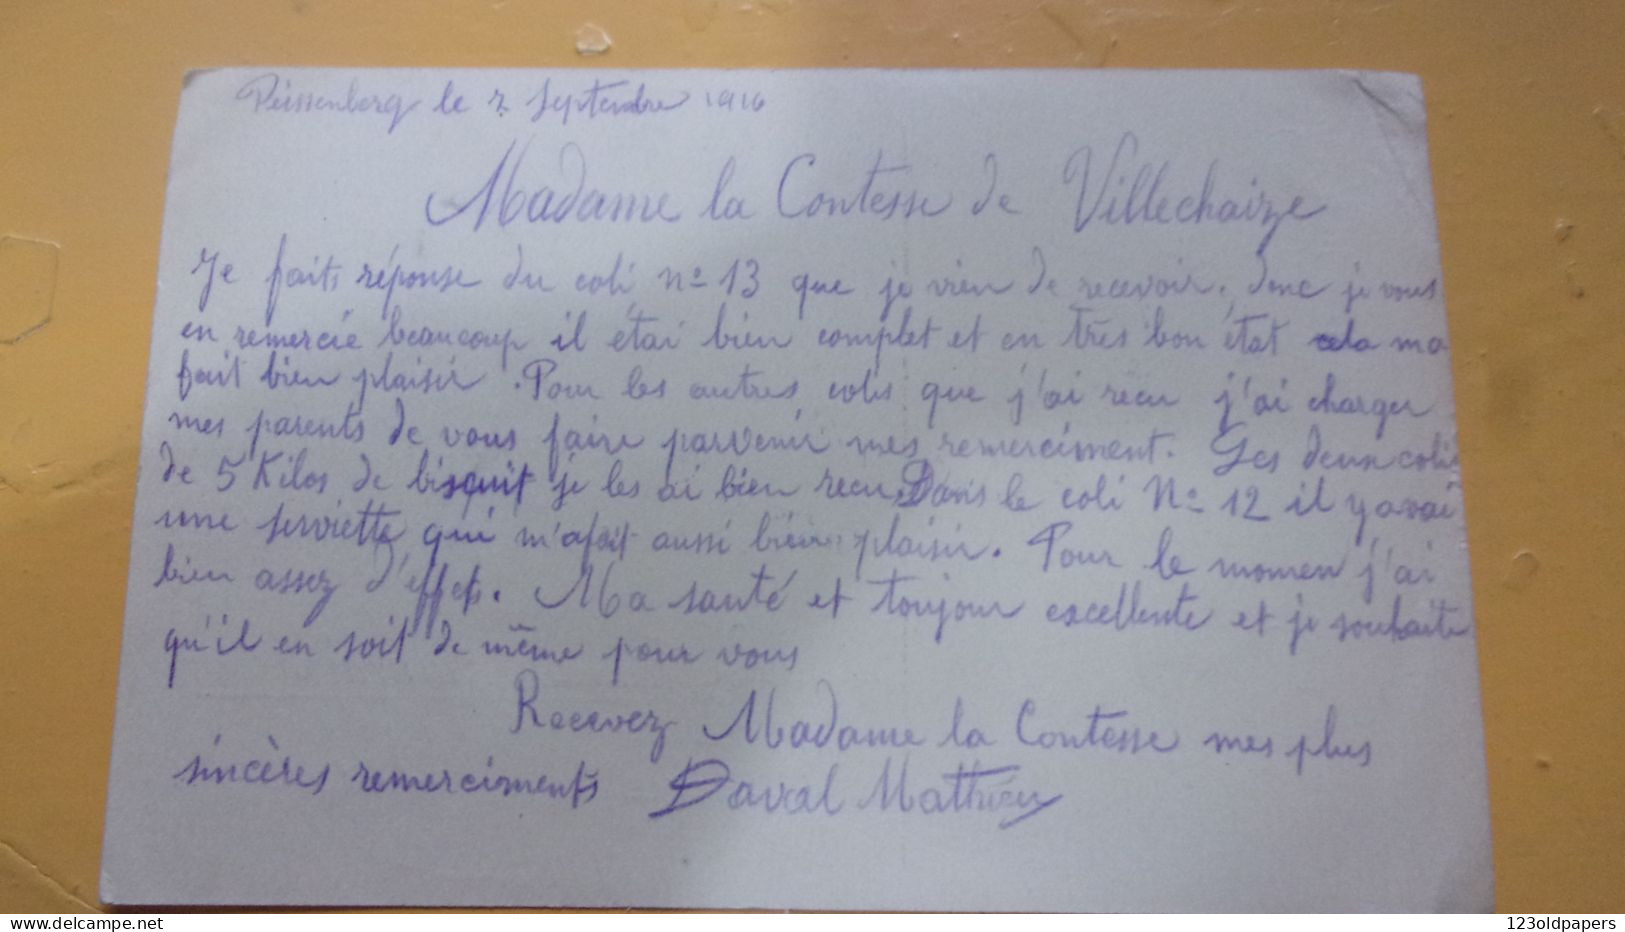 Peissenberg le 7 Septembre 1916
Madame la Contesse de Villechaize
Je faits réponse du coli n° 13 que je vien de recevoir, donc je vous
en remercie beaucoup il étai bien complet et en très bon état cela ma
fait bien plaisir. Pour les autres colis que j'ai recu j'ai charger
mes parents de vous faire parvenir mes remerciment. Les deux colis
de 5 Kilos de bisquit je les ai bien recu. Dans le coli N° 12 il y avai
une serviette qui m'a fait aussi bien plaisir. Pour le momen j'ai
bien assez d'effets. Ma santé et toujour excellente et je souhaite
qu'il en soit de même pour vous
Recevez Madame la Contesse mes plus
sincères remerciments Daval Mathieu
123oldpapers